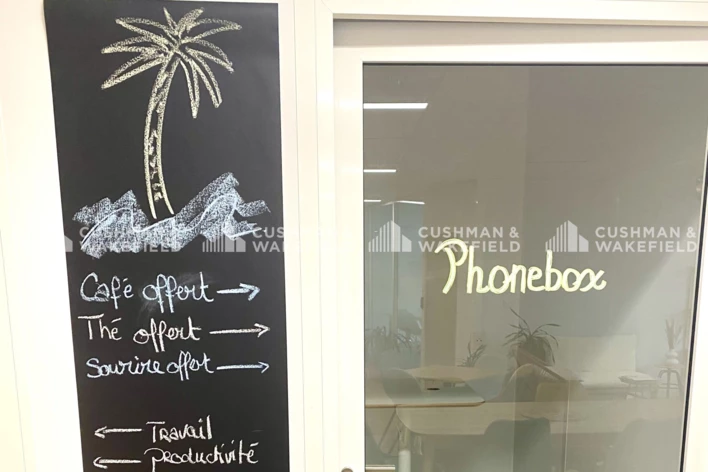 Café offert →
Thé offert →
Sourire offert →
← Travail
← Productivité
Phonebox
CUSHMAN &
WAKEFIELD
CUSHMAN &
WAKEFIELD
CUSHMAN &
WAKEFIELD
CUSHMAN &
WAKEFIELD